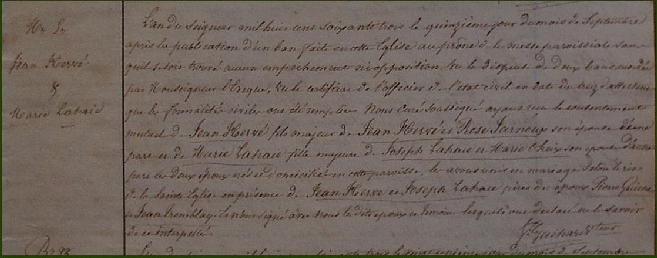 Jean Hervé
&
Marie Lahaie
L'an du Seigneur mil huit cent soixante trois le quinzième jour du mois de Septembre
après la publication d'un ban faite en cette Eglise au prône de la messe paroissiale sans
qu'il se soit trouvé aucun empêchement ni opposition Vu la dispense de deux bans accordée
par Monseigneur l'Evêque, Vu le certificat de l'officier de l'état civil en date du treize attestant
que les formalités civiles ont été remplies Nous Curé soussigné ayant reçu le consentement
mutuel de Jean Hervé fils majeur de Jean Hervé et Rose son épouse d'une
part et de Marie Lahaie fille majeure de Joseph Lahaie et Marie son épouse d'autre
part les deux époux nés et domiciliés en cette paroisse les avons unis en mariage selon le rit
de la Sainte Eglise en présence de Jean Hervé et Joseph Lahaie pères des époux Pierre
et Jean Tremblage avec nous les dits époux et témoins lesquels ont déclaré ne le savoir
de ce interpellé